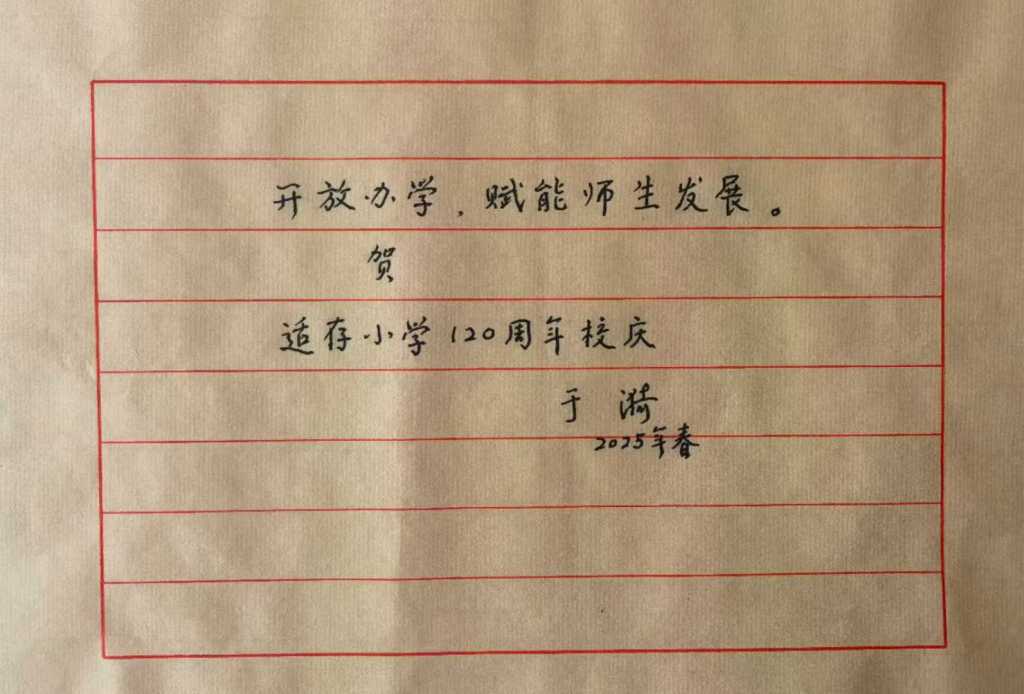 开放办学，赋能师生发展。
贺
适存小学120周年校庆
于漪
2025年春